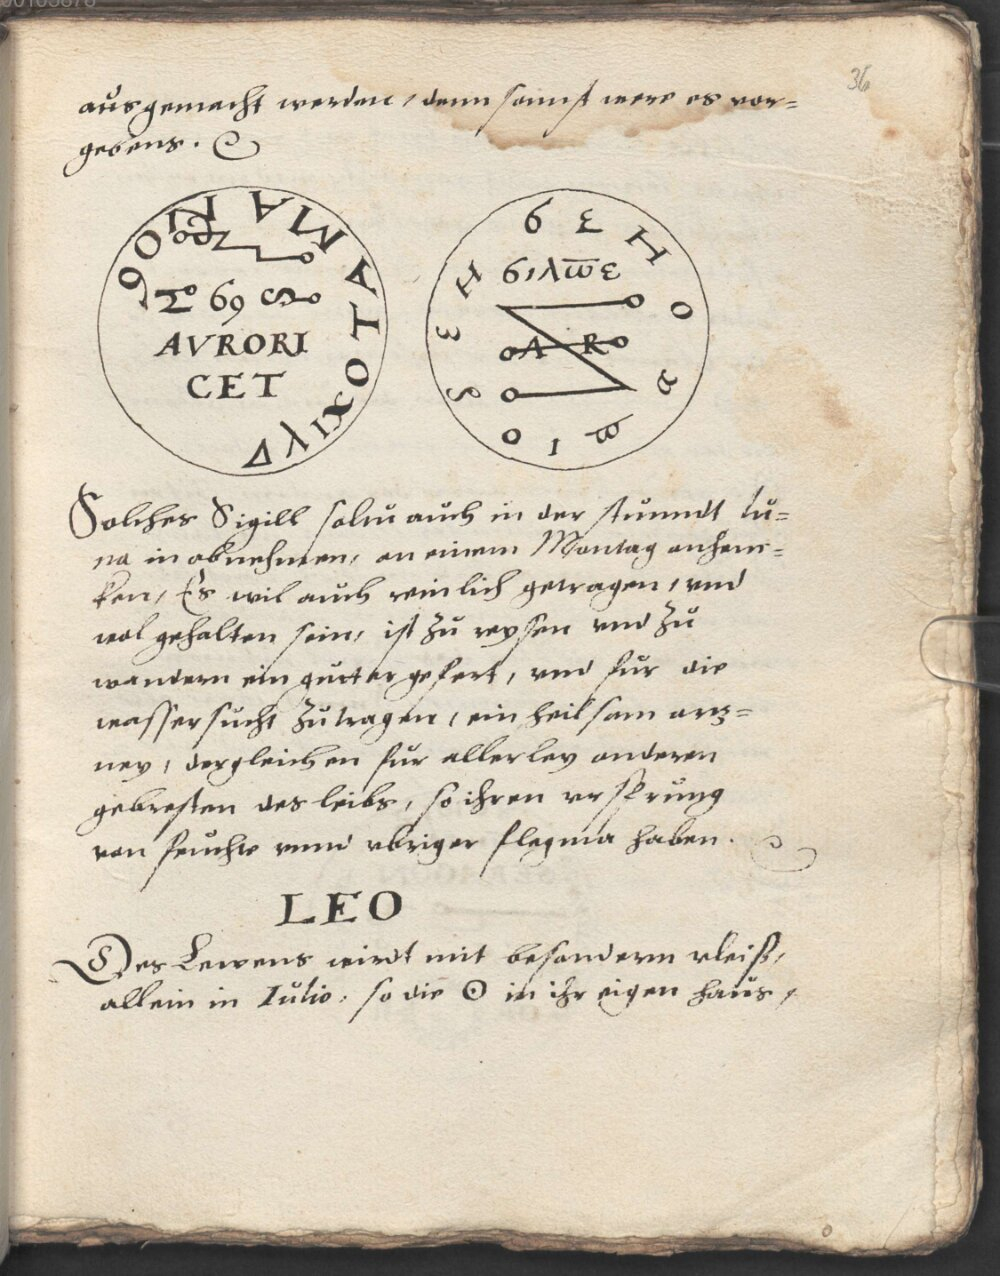 36
ausgemacht werden / dann sonnst were es ver=
gebens.
AVRORI
CET
Solches Sigill soltu auch in der stunndt Lu=
na in abnehmen, an einem Montag anhenc=
ken / Es wil auch reinlich getragen / vnd
wol gehalten sein, ist Zu reysen vnd Zu
wandern ein gutter gefert, vnd für die
wassersucht Zu tragen / ein heilsam artz=
ney / dergleichen für allerley anderen
gebresten des leibs, so ihren vrsprung
von feuchte vnnd vbriger flegma haben.
LEO
Des Lewens wirdt mit besonderm vleiß,
allein in Iulio, so die ☉ in ihr eigen haus,